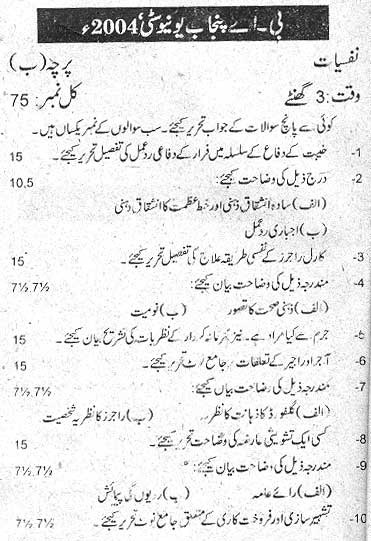 بی۔اے پنجاب یونیوسٹی، 2004ء
نفسیات پرچہ (ب)
وقت: 3 گھنٹے کل نمبر: 75
کوئی سے پانچ سوالات کے جواب تحریر کیجئے۔ سب سوالوں کے نمبر یکساں ہیں۔
1- خفیت کے دفاع کے سلسلہ میں فرار کے دفاعی ردعمل کی تفصیل تحریر کیجئے۔ 15
2- درج ذیل کی وضاحت کیجئے: 10,5
(الف) سادہ انشقاق ذہنی اور خبط عظمت کا انشقاق ذہنی
(ب) اجباری ردعمل
3- کارل راجرز کے نفسی طریقہ علاج کی تفصیل تحریر کیجئے۔ 15
4- مندرجہ ذیل کی وضاحت بیان کیجئے: 7½,7½
(الف) ذہنی صحت کا تصور (ب) نومیت
5- جرم سے کیا مراد ہے۔ نیز مجرمانہ کردار کے نظریات کی تشریح بیان کیجئے۔ 15
6- آجر اور اجیر کے تعلقات پر جامع نوٹ تحریر کیجئے۔ 15
7- مندرجہ ذیل کی وضاحت بیاں کیجئے: 7½,7½
(الف) گلفورڈ کا ذہانت کا نظریہ (ب) راجرز کا نظریہ شخصیت
8- کسی ایک تشویشی عارضہ کی وضاحت تحریر کیجئے۔ 15
9- مندرجہ ذیل کی وضاحت بیان کیجئے: 7½,7½
(الف) رائے عامہ (ب) رویوں کی پیمائش
10- تشہیر سازی اور فروخت کاری کے متعلق جامع نوٹ تحریر کیجئے۔ 7½,7½